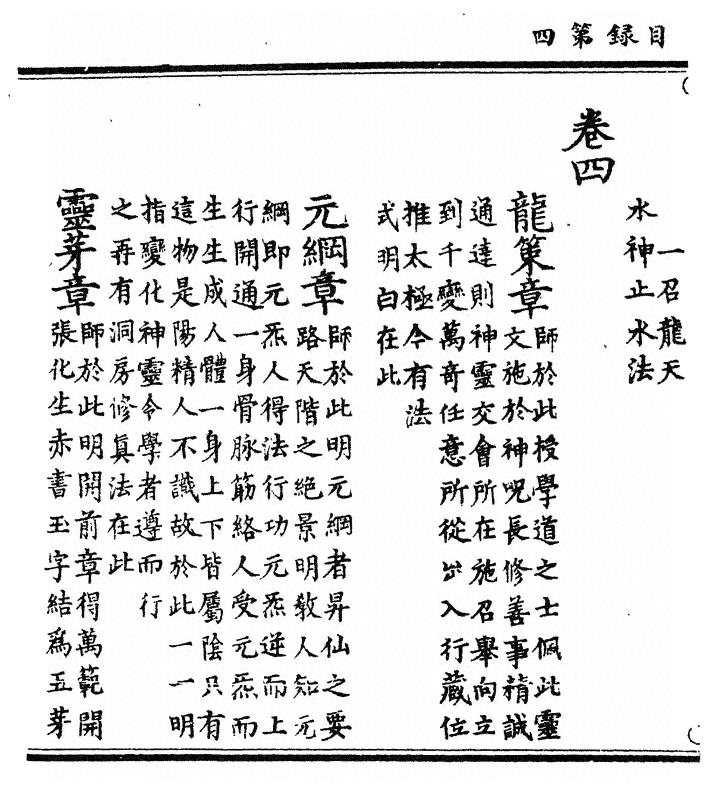 目錄第四
一召龍天
水神止水法
卷四
龍策章師於此授學道之士佩此靈
文施於神呪長修善事精誠
通達則神靈交會所在施召舉向立
到千變萬奇任意所從出入行藏位
推太極令有法
式明白在此
元綱章師於此明元綱者昇仙之要
路天階之絕景明教人知元
綱即元炁人得法行功元炁逆而上
行開通一身骨脉筋絡人受元炁而
生生成人體一身上下皆屬陰只有
這物是陽精人不識故於此一一明
指變化神靈令學者遵而行
之再有洞房修真法在此
靈芽章師於此明開前章得萬範開
張化生赤書玉字結爲五芽